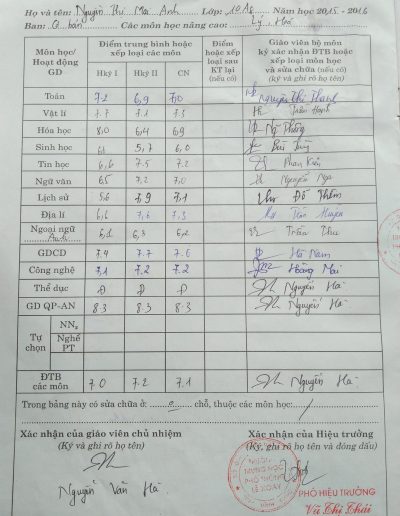 Họ và tên: Nguyễn Thị Mai Anh Lớp: 10A8 Năm học 2015 - 2016
Ban: Cơ bản Các môn học nâng cao: Lý, Hoá
Môn học/ Hoạt động GD | Điểm trung bình hoặc xếp loại các môn | Điểm hoặc xếp loại sau KT lại (nếu có) | Giáo viên bộ môn ký xác nhận ĐTB hoặc xếp loại môn học và sửa chữa (nếu có) (ký và ghi rõ họ tên)
Hkỳ I | Hkỳ II | CN
Toán 7.2 6,9 7,0 Nguyễn Thị Thanh
Vật lí 7.7 7.1 7.3
Hóa học 8,0 6,4 6,9
Sinh học 6.1 5,7 6,0
Tin học 6,6 7.5 7.2
Ngữ văn 6,5 7,2 7,0 Nguyễn Nga
Lịch sử 5,6 7,9 7,1 Đỗ Thêm
Địa lí 6,6 7,6 7,3
Ngoại ngữ Anh 6,1 6,3 6,2 Trần Thu
GDCD 7.4 7.7 7.6 Hà Nam
Công nghệ 7.1 7.2 7.2 Hoàng Mai
Thể dục Đ Đ Đ Nguyễn Hà
GD QP-AN 8.3 8.3 8.3 Nguyễn Hà
Tự chọn
NN₂
Nghề PT
ĐTB các môn 7.0 7.2 7.1 Nguyễn Hà
Trong bảng này có sửa chữa ở: 0 chỗ, thuộc các môn học: /
Xác nhận của giáo viên chủ nhiệm
(Ký và ghi rõ họ tên)
Nguyễn Văn Hà
Xác nhận của Hiệu trưởng
(Ký, ghi rõ họ tên và đóng dấu)
TRƯỜNG
TRUNG HỌC
PHỔ THÔNG
LÊ XOAY
PHÓ HIỆU TRƯỞNG
Vũ Thị Thái